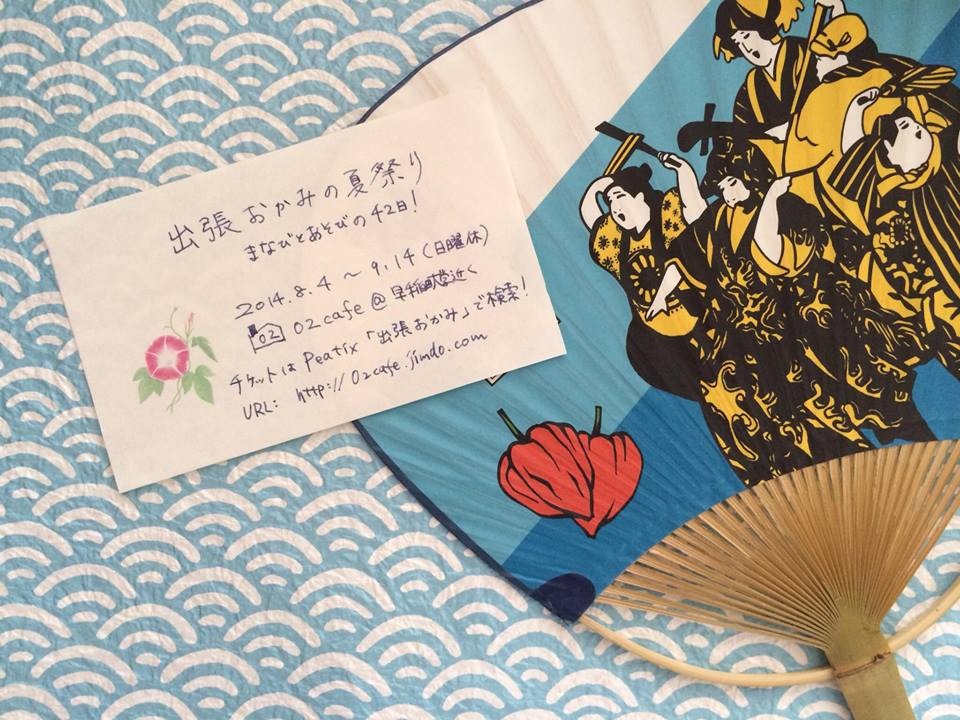 出張おかみの夏祭り
まなびとあそびの42日!
2014.8.4 ~ 9.14 (日曜休)
02 02cafe @ 早稲田大学近く
チケットは Peatix 「出張おかみ」で検索!
URL: http://02cafe.jimdo.com